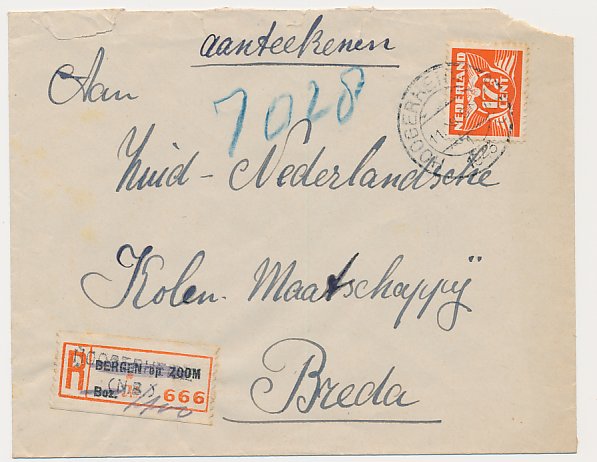 aanteekenen
Aan
7028
NEDERLAND
17½
CENT
HOOGERHEI
Zuid-Nederlandsche
Kolen-Maatschappÿ
Breda
R
BERGEN op ZOOM
(N.B.)
Boz.
666